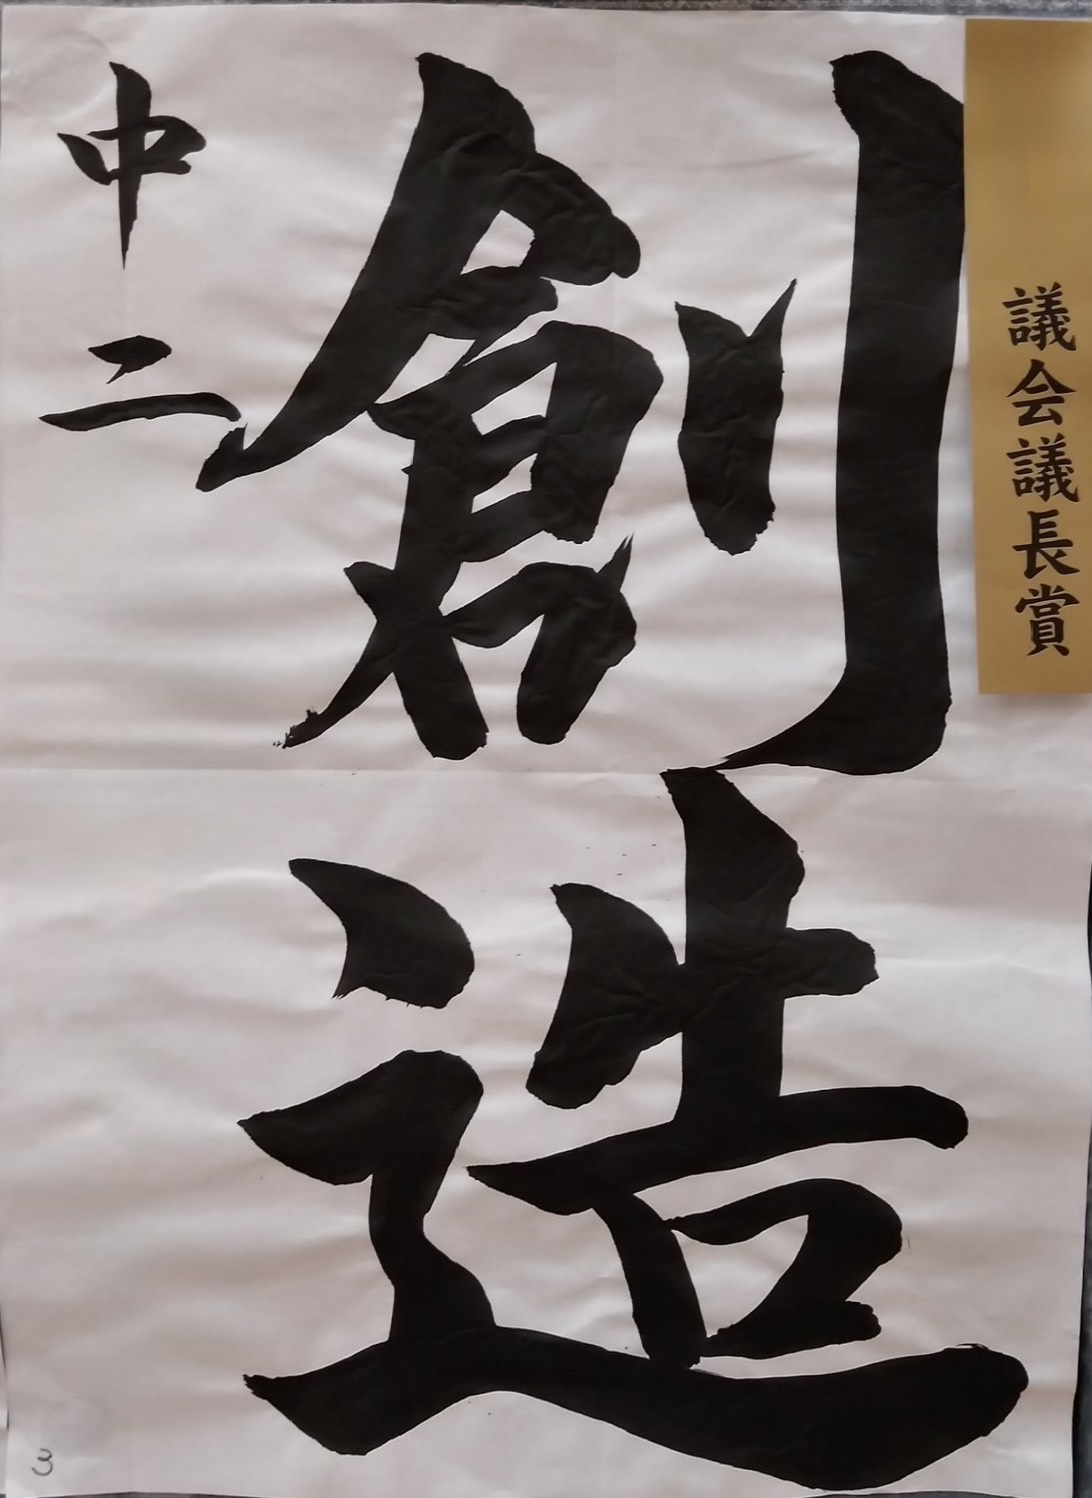 議会議長賞
創造
中二
3